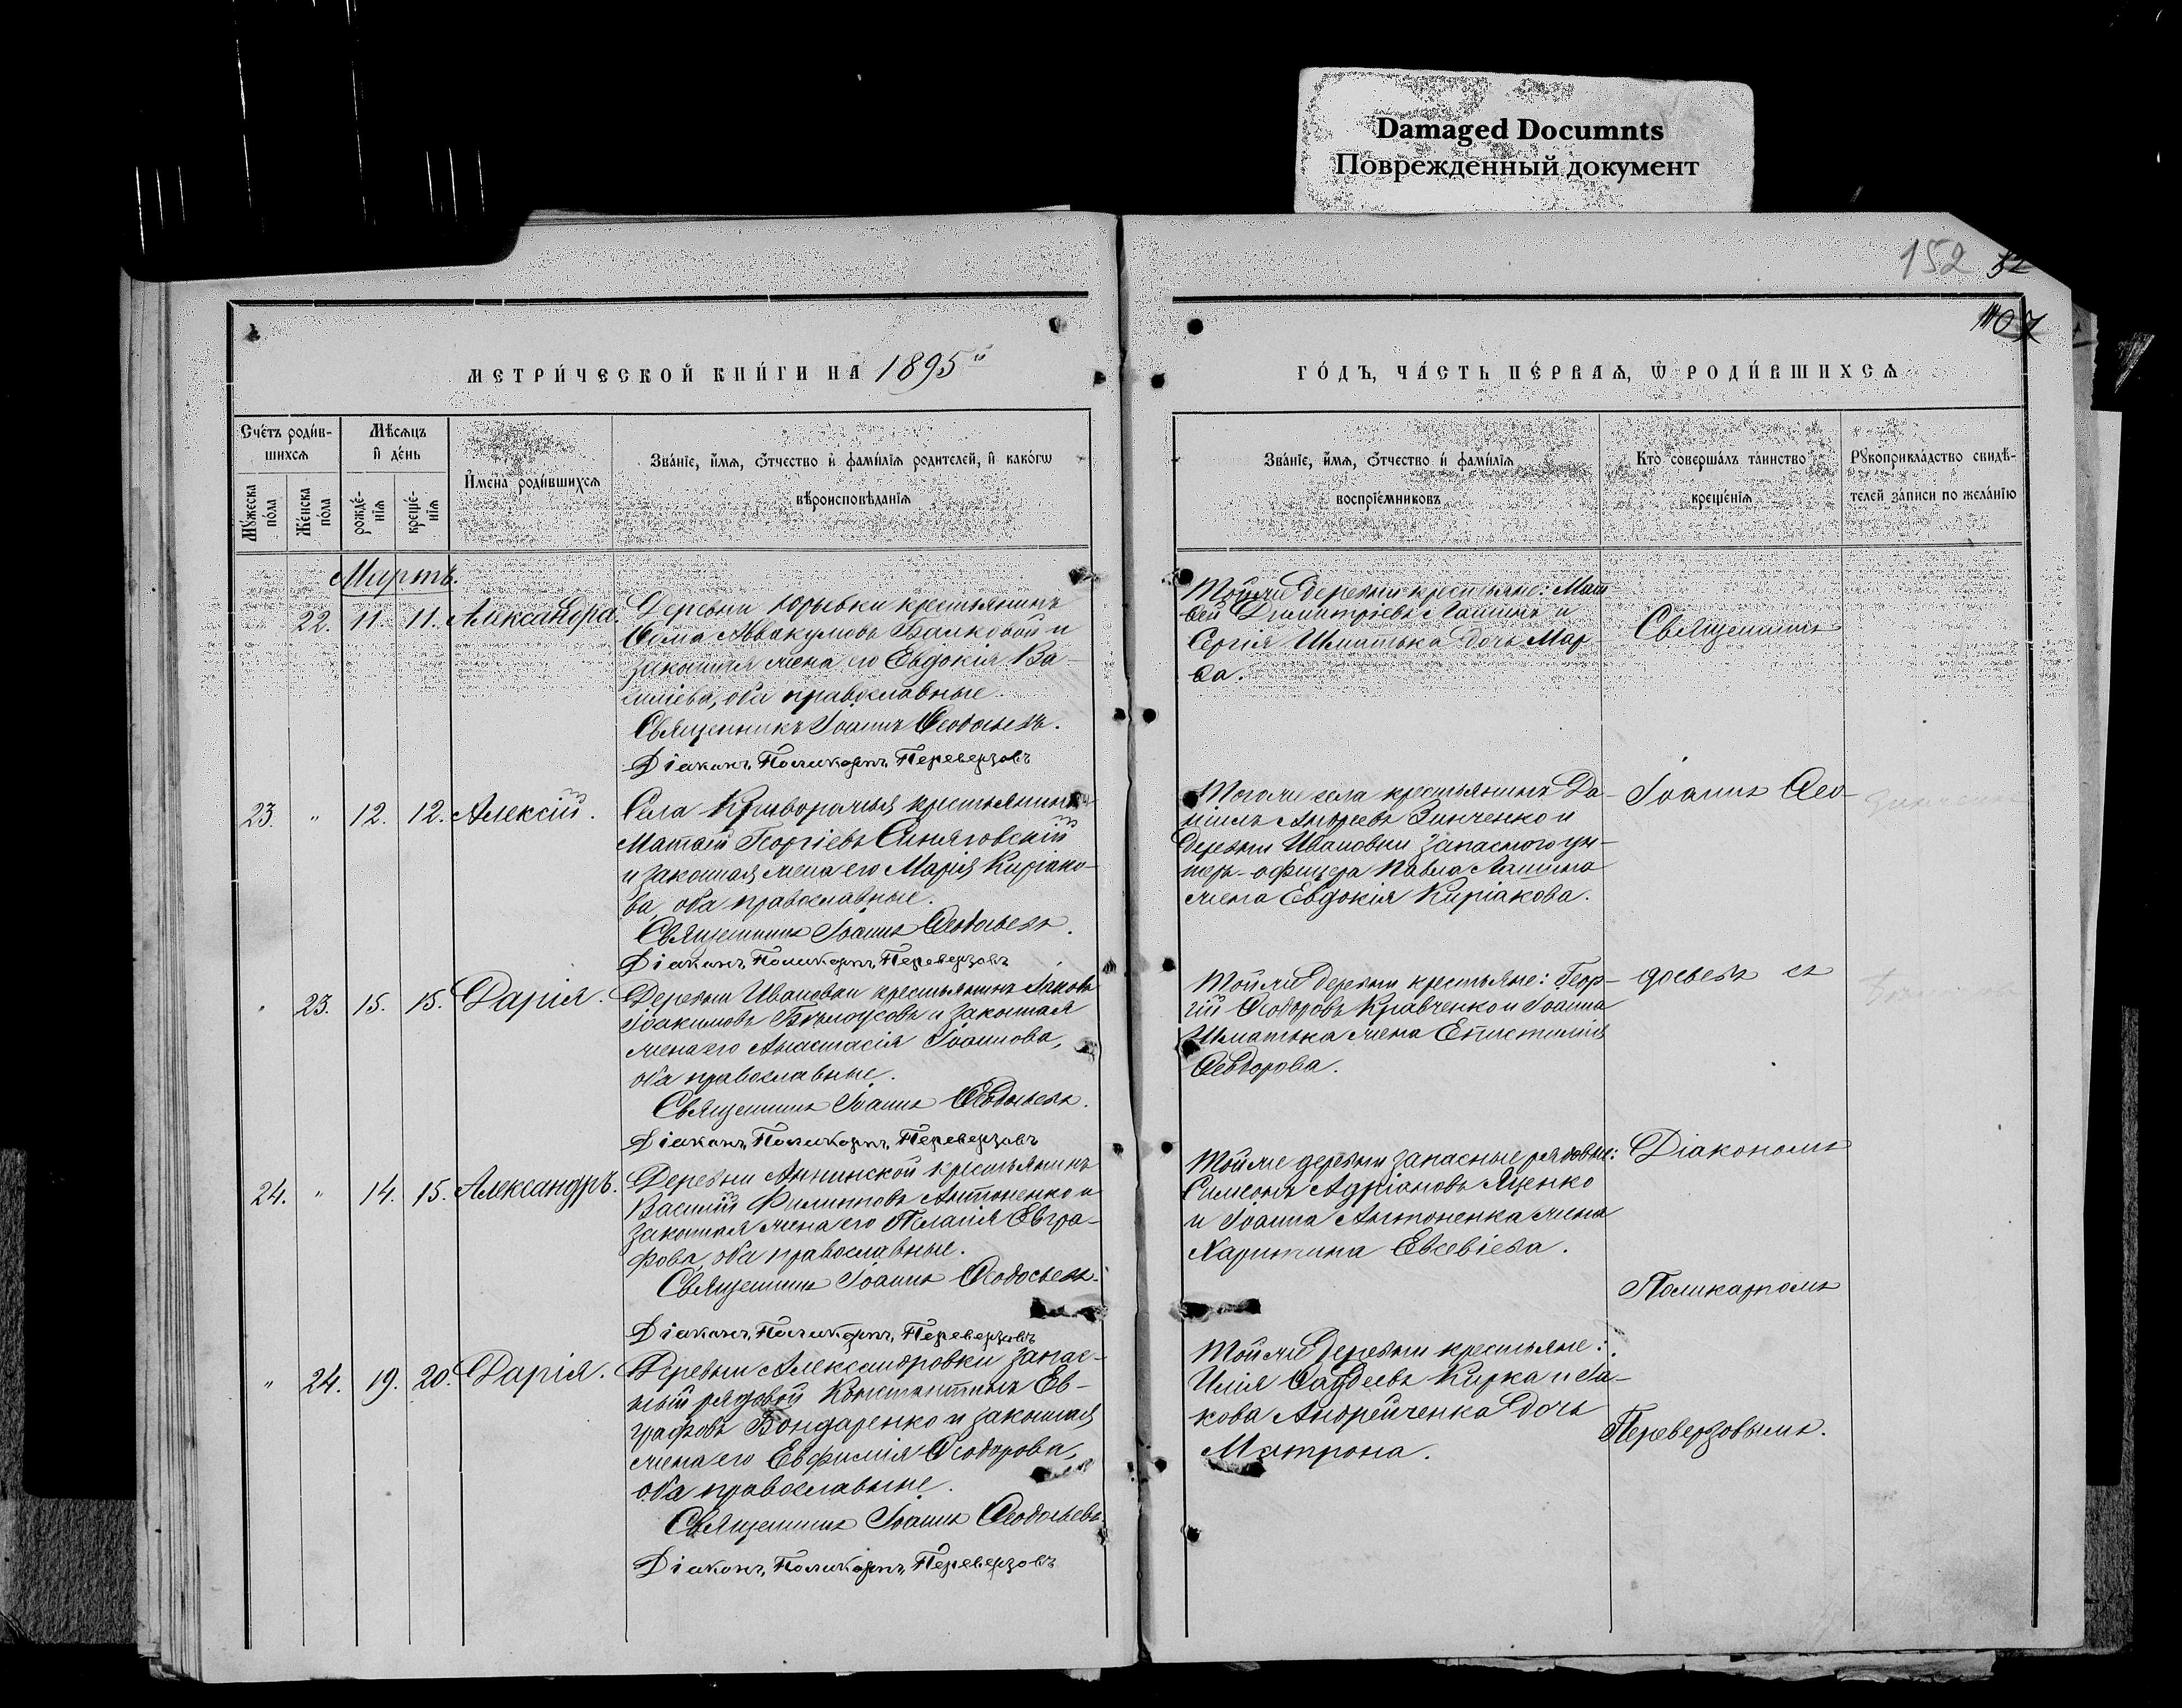 Damaged Documnts
Поврежденный документ
152
107
МЕТРИ́ЧЕСКОЙ КНИ́ГИ НА 1895й
ГО́ДЪ, ЧА́СТЬ ПЕ́РВАѦ, Ѡ҆ РОДИ́ВШИХСѦ
Сче́тъ роди́в-
шихсѧ
Мѣ́сѧцъ
и҆ де́нь
Мꙋ́жеска
по́ла
Же́нска
по́ла
рожде́-
нїѧ
креще́-
нїѧ
И҆мена̀ роди́вшихсѧ
Зва́нїе, и҆́мѧ, ѻ҆́тчество и҆ фами́лїѧ родителей, и҆ како́гѡ
вѣроисповѣ́данїѧ
Зва́нїе, и҆́мѧ, ѻ҆́тчество и҆ фами́лїѧ
воспрїе́мниковъ
Кто̀ соверша́лъ та́инство
креще́нїѧ
Рꙋкоприкла́дство свидѣ́-
телей за́писи по жела́нїю
Мартъ.
22. 11. 11. Александра.
Деревни Юрьевки крестьянинъ
Ѳома Аввакумовъ Балковой и
законная жена его Евдокія Ва-
силіева, оба православные.
Священникъ Іоаннъ Ѳеодосьевъ.
Діаконъ Поликарпъ Переверзовъ
Той же деревни крестьяне: Мат-
ѳей Димитріевъ Лашинъ и
Сергія Шматька дочь Мар-
ѳа.
Священникъ
23. " 12. 12. Алексій.
Села Криворожья крестьянинъ
Матѳій Георгіевъ Синяговскій
и законная жена его Марія Киріако-
ва, оба православные.
Священникъ Іоаннъ Ѳеодосьевъ.
Діаконъ Поликарпъ Переверзовъ
Того же села крестьянинъ Да-
ніилъ Андреевъ Зинченко и
деревни Ивановки запасного ун-
теръ-офицера Павла Лашина
жена Евдокія Киріакова.
Іоаннъ Ѳео-
" 23. 15. 15. Дарія.
Деревни Ивановки крестьянинъ Іаковъ
Іоакимовъ Бѣлоусовъ и законная
жена его Анастасія Іоаннова,
оба православные.
Священникъ Іоаннъ Ѳеодосьевъ.
Діаконъ Поликарпъ Переверзовъ
Той же деревни крестьяне: Геор-
гій Ѳеодоровъ Кравченко и Іоанна
Шматька жена Епистимія
Ѳеодорова.
досьевъ съ
24. " 14. 15. Александръ.
Деревни Аннинской крестьянинъ
Василій Филипповъ Антоненко и
законная жена его Пелагія Евгра-
фова, оба православные.
Священникъ Іоаннъ Ѳеодосьевъ.
Діаконъ Поликарпъ Переверзовъ
Той же деревни запасные рядовые:
Симеонъ Адріановъ Яценко
и Іоанна Антоненка жена
Харитина Евсевіева.
Діакономъ
Поликарпомъ
" 24. 19. 20. Дарія.
Деревни Александровки запас-
ный рядовой Константинъ Ев-
графовъ Бондаренко и законная
жена его Евфимія Ѳеодорова,
оба православные.
Священникъ Іоаннъ Ѳеодосьевъ.
Діаконъ Поликарпъ Переверзовъ
Той же деревни крестьяне:
Илія Ѳаддеевъ Кирка и Іа-
кова Андрейченка дочь
Матрона.
Переверзовымъ.